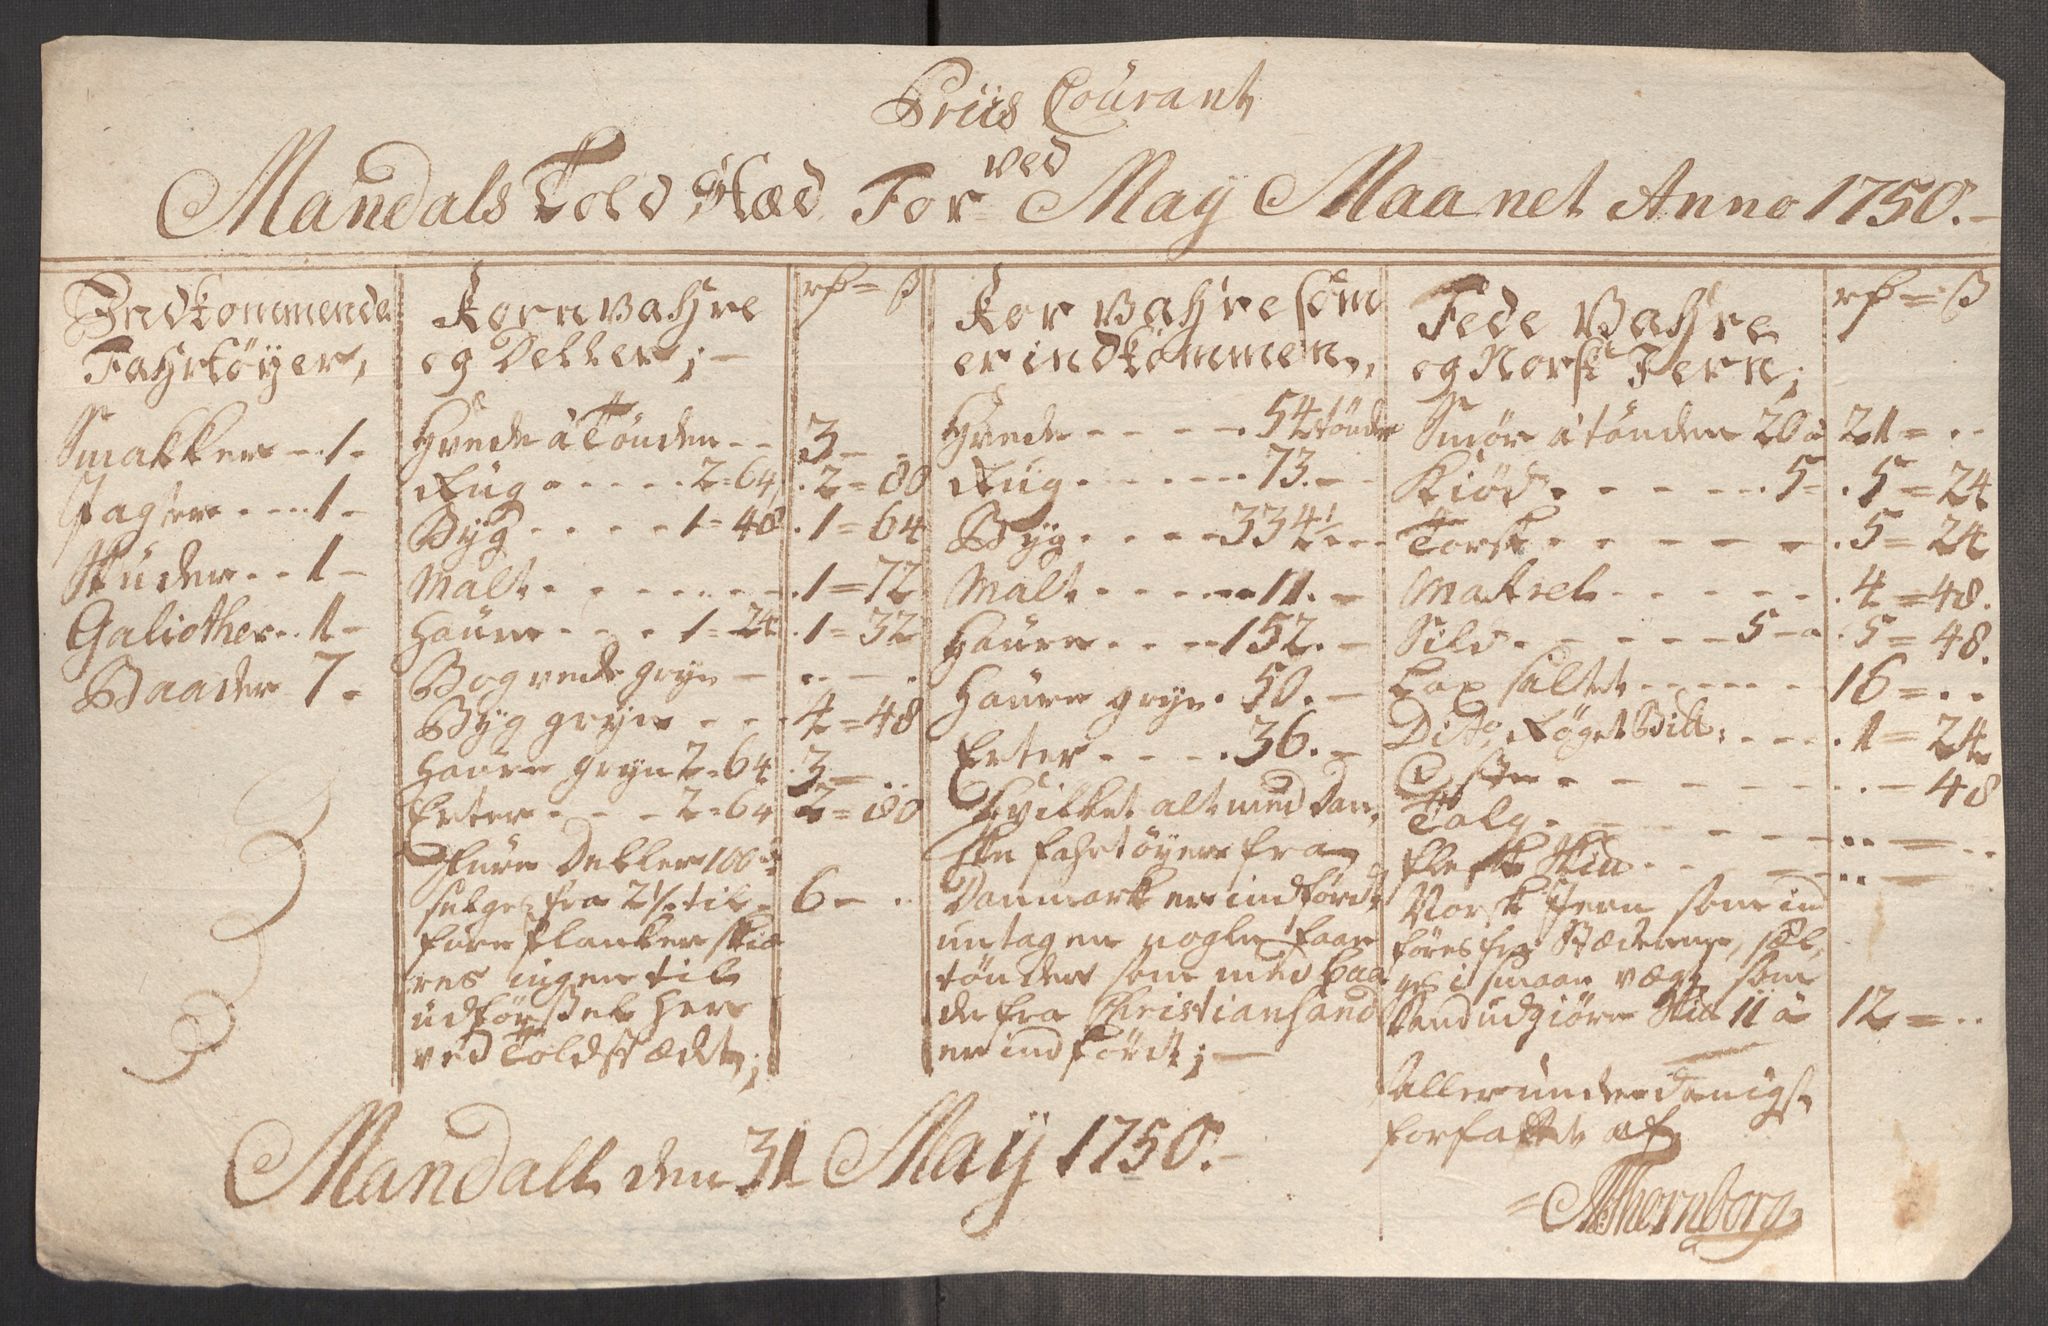 Priis Courant
ved
Mandals Told Stæd For May Maanet Anno 1750.
Indkommende
Fahrtøÿer,
Smakker - 1 -
Jagter - - - 1 -
Skuder - - 1 -
Galiother - - 1 -
Baader 7 -
Kornvahre
og Deller; -
rf = ß
Hvede à Tønden - - 3 -
Rug - - - - 2=64 . 2=80
Byg - - - - 1=48 . 1=64
Malt - - - - - - . 1=72
Haure - - - 1=24 . 1=32
Bogvede gryn - - - -
Byg gryn - - - 4=48
Haure gryn 2=64 . 3 - - -
Erter - - - 2=64 2=80
Fure Deller 100de
selges fra 2 1/2 til - 6 - - -
fure planker skiæ
res ingen til
udførsel her
ved Toldstædet;
Kor Vahre som
er indkommen,
Hvede - - - - . 54 tønder
Rug - - - - - 73. - -
Byg - - - - 334 1/2 - - -
Malt - - - - - 11. -
Haure - - - - 152. -
Haure gryn . 50. -
Erter - - - . 36. -
Hvilket alt med Dan,
ske fahrtøyer fra
Danmark er indført,
untagen nogle faae
tønder som med Baa
de fra Christiansand
er indført; -
Fede Vahre
og Norsk Jern;
rf = ß
Smør à tønden 20 à 21= - -
Kiød - - - - - . 5 - . 5=24
Torsk - - - - - - . 5=24
Makrel - - - - - . 4=48.
Sild - - - - - 5 - à . 5=48.
Lax saltet - - - - - - 16= - -
Dito Røget Bill: - - - . 1=24
Oste - - - - - - - - 48
Talg - - - - - - - - = - -
- - - - - - =
Norsk Jern som ind
føres fra Stæderne, sæl,
ges i smaae vægt som
Skid 11 à 12= - -
allerunderdanigst
forfattet af
Mandall den 31 May 1750. -
Thornborg